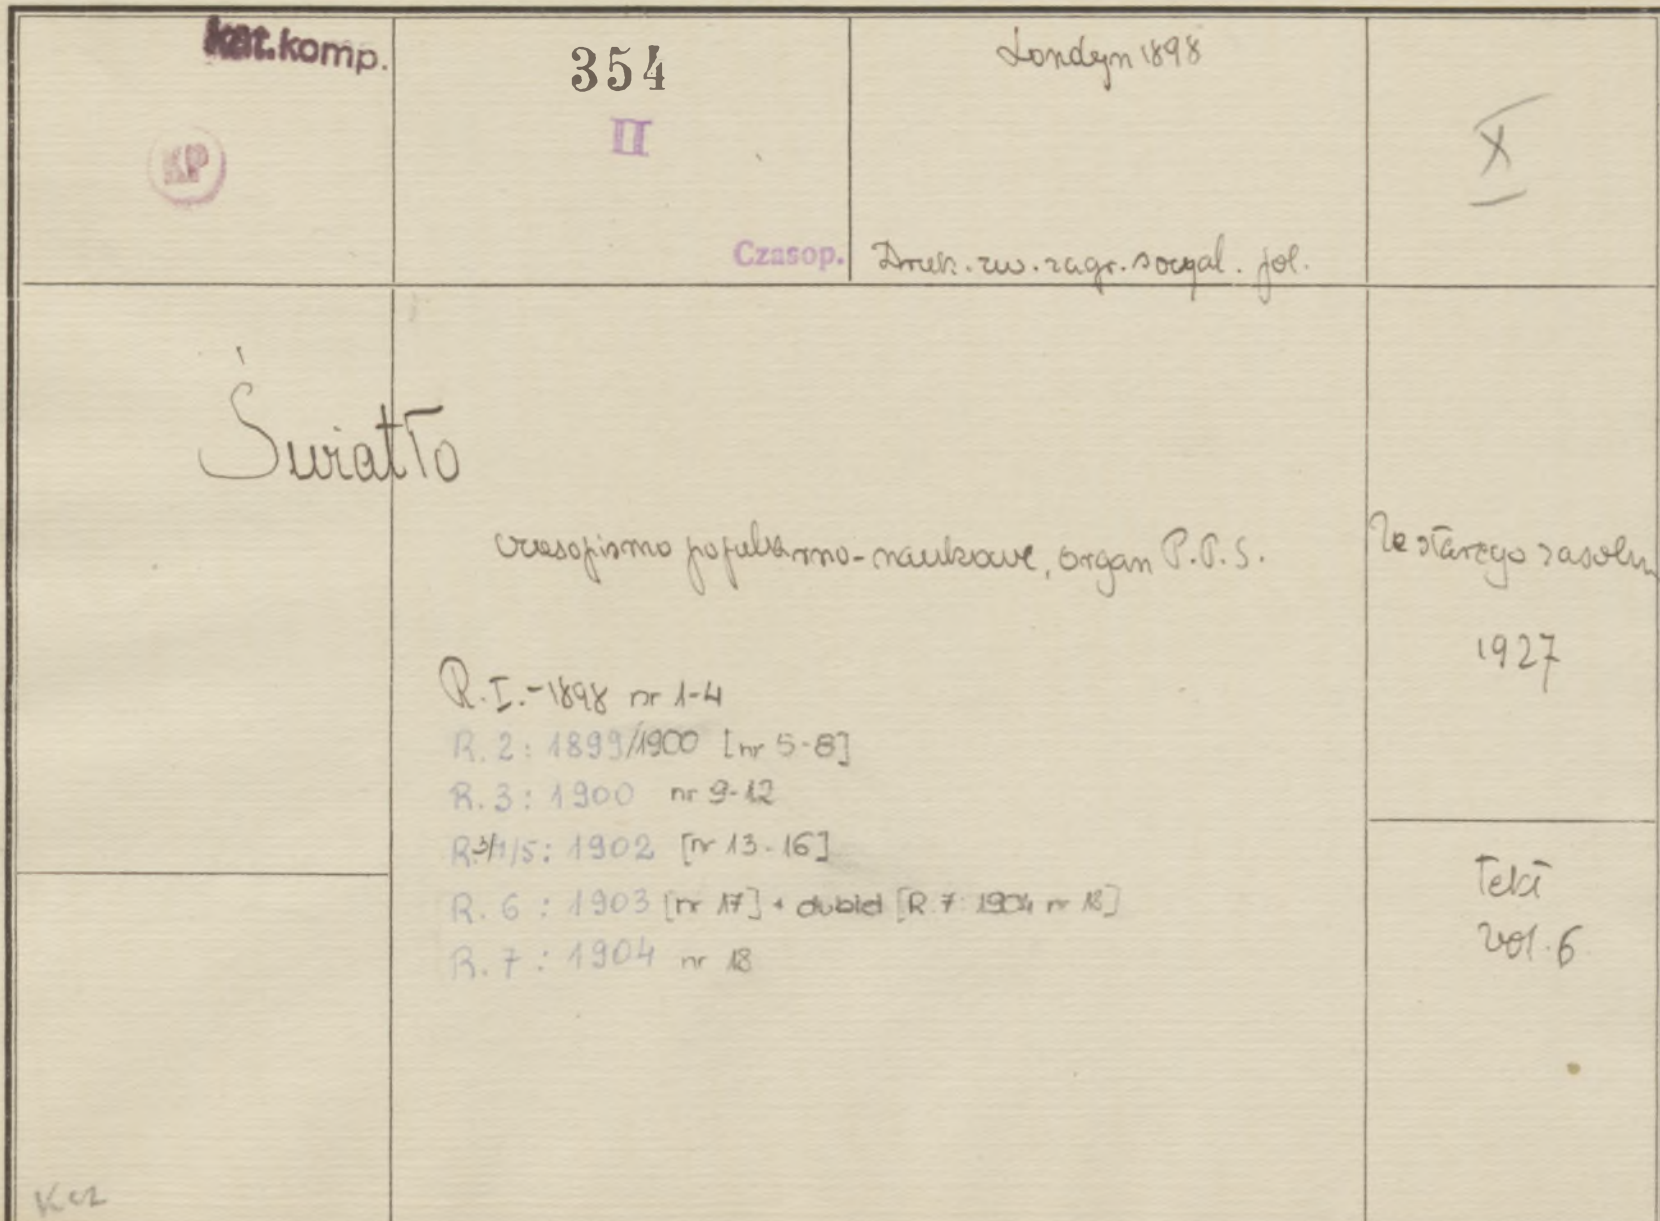 kat.komp.
KP
354
II
Czasop.
Londyn 1898
Druk. zw. zagr. socyal. pol.
X
Światło
czasopismo popularno-naukowe, organ P.P.S.
R.I.-1898 nr 1-4
R. 2: 1899/1900 [nr 5-8]
R. 3: 1900 nr 9-12
R. 3/4/5: 1902 [nr 13-16]
R. 6: 1903 [nr 17] + dublet [R. 7: 1904 nr 18]
R. 7: 1904 nr 18
Ze starego zasobu
1927
Tekt
vol. 6
Kcz